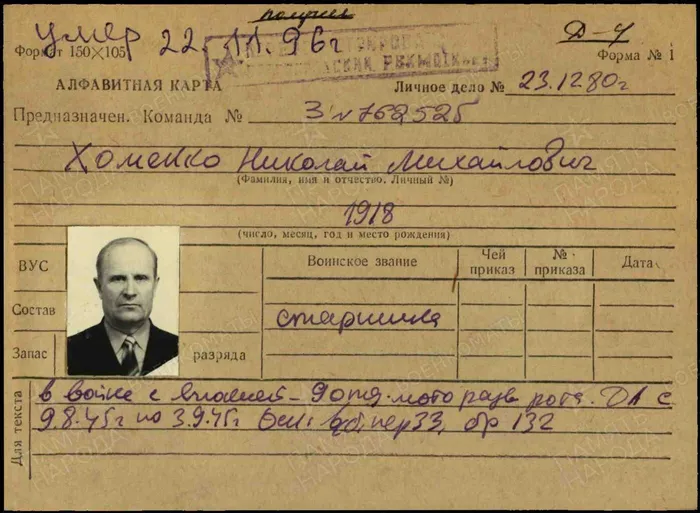 умер 22.11.96г
Д-4
Формат 150×105
Форма № 1
АЛФАВИТНАЯ КАРТА
Личное дело № 23.12.80г
Предназначен. Команда № 3 N 762526
Хоменко Николай Михайлович
(Фамилия, имя и отчество. Личный №)
1918
(число, месяц, год и место рождения)
ВУС
Воинское звание
Чей приказ
№ приказа
Дата
Состав
старшина
Запас
разряда
Для текста
в войне с Японией - 9 отд. мото разв рота. ДА с
9.8.45г по 3.9.45г Осн:
33, обр 132
ПАМЯТЬ НАРОДА